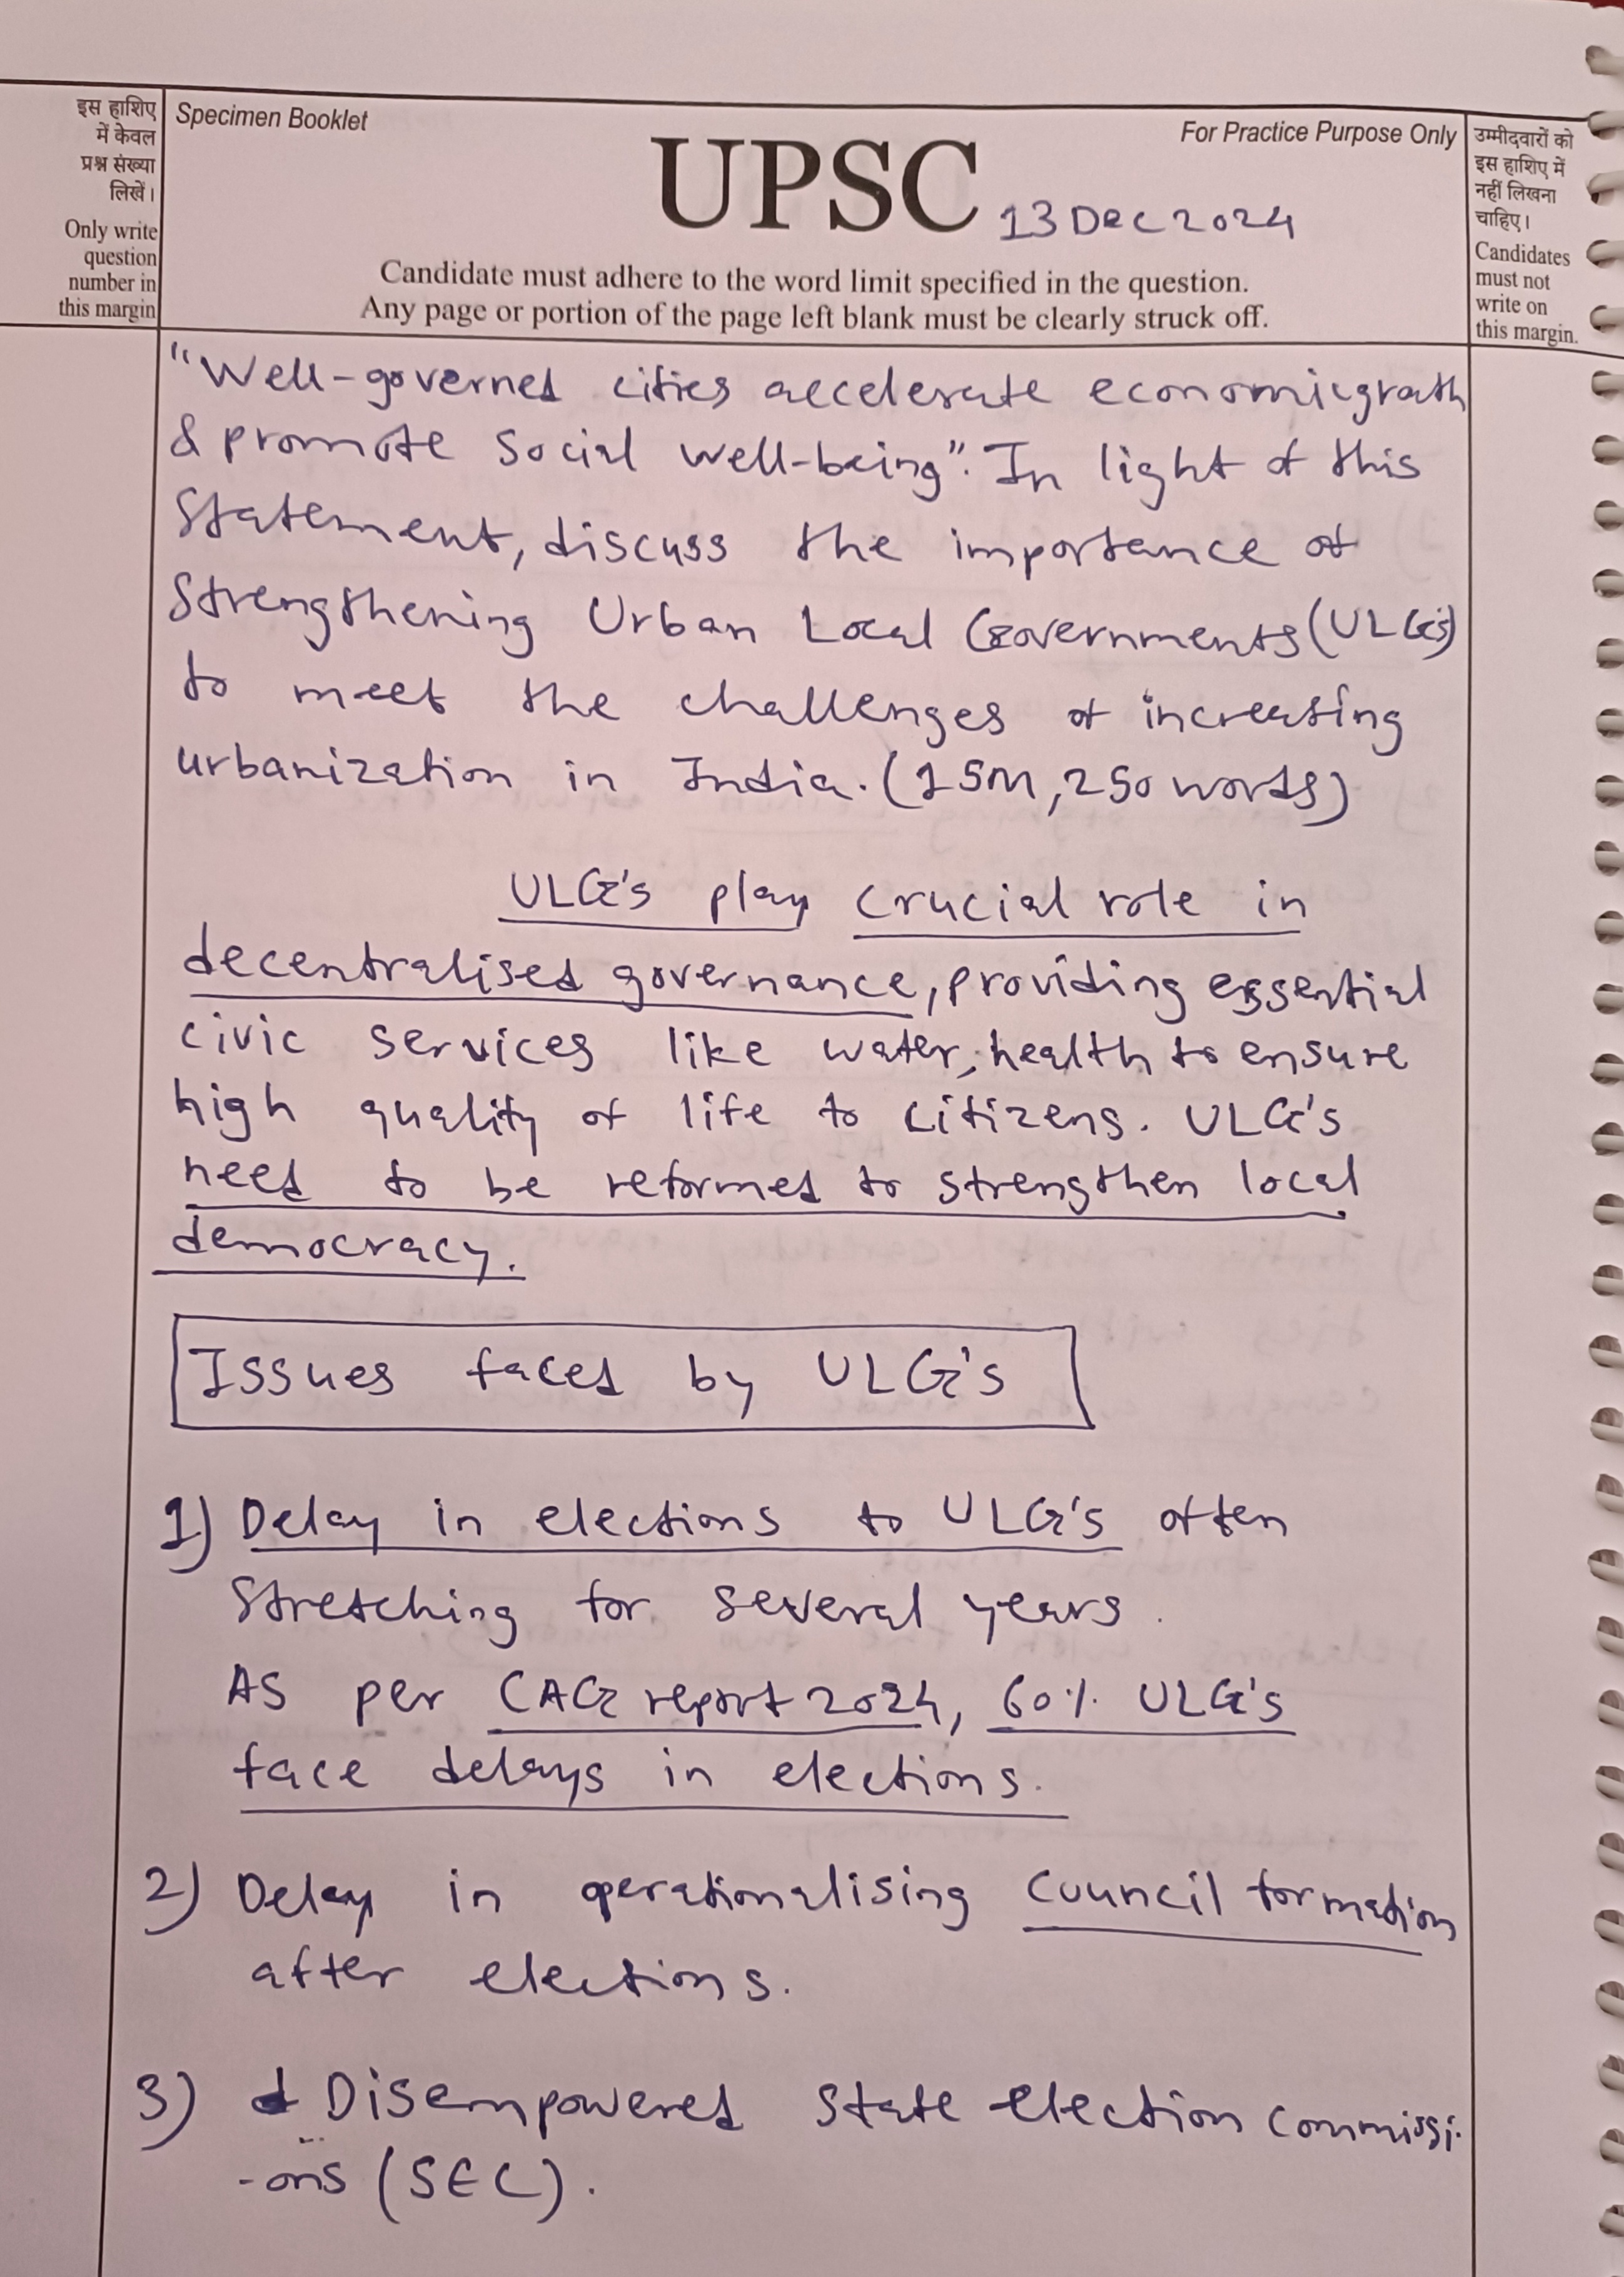 इस हाशिए
में केवल
प्रश्न संख्या
लिखें।
Only write
question
number in
this margin
Specimen Booklet
For Practice Purpose Only
UPSC 13 Dec 2024
Candidate must adhere to the word limit specified in the question.
Any page or portion of the page left blank must be clearly struck off.
उम्मीदवारों को
इस हाशिए में
नहीं लिखना
चाहिए।
Candidates
must not
write on
this margin.
"Well-governed cities accelerate economic growth
& promote social well-being". In light of this
Statement, discuss the importance of
Strengthening Urban Local Governments (ULG's)
to meet the challenges of increasing
urbanization in India. (15M, 250 words)
ULG's play crucial role in
decentralised governance, providing essential
civic services like water, health to ensure
high quality of life to citizens. ULG's
need to be reformed to strengthen local
democracy.
Issues faced by ULG's
1) Delay in elections to ULG's often
Stretching for several years.
As per CAG report 2024, 60% ULG's
face delays in elections.
2) Delay in operationalising council formation
after elections.
3) Disempowered State Election Commissi-
-ons (SEC).